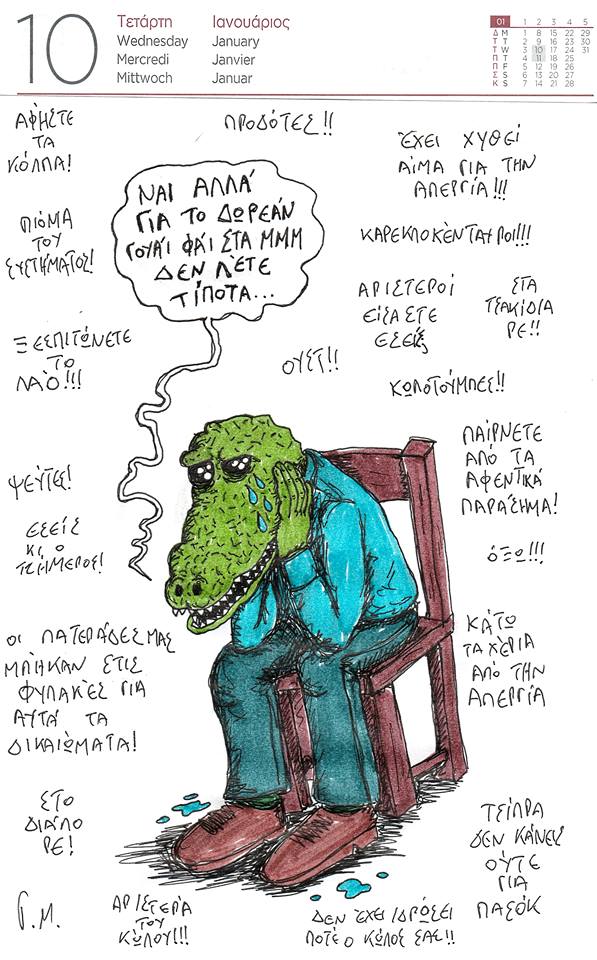 10
Τετάρτη Ιανουάριος
Wednesday January
Mercredi Janvier
Mittwoch Januar
01 1 2 3 4 5
Δ M 1 8 15 22 29
Τ T 2 9 16 23 30
Τ W 3 10 17 24 31
Π T 4 11 18 25
Π F 5 12 19 26
Σ S 6 13 20 27
Κ S 7 14 21 28
ΑΦΗΣΤΕ
ΤΑ
ΚΌΛΠΑ!
ΠΡΟΔΌΤΕΣ!!
ΈΧΕΙ ΧΥΘΕΊ
ΑΊΜΑ ΓΙΑ ΤΗΝ
ΑΠΕΡΓΊΑ!!!
ΝΑΙ ΑΛΛΆ
ΓΙΑ ΤΟ ΔΩΡΕΆΝ
ΓΟΥΆΙ ΦΆΙ ΣΤΑ ΜΜΜ
ΔΕΝ ΛΈΤΕ
ΤΊΠΟΤΑ...
ΠΙΌΝΙΑ
ΤΟΥ
ΣΥΣΤΉΜΑΤΟΣ!
ΚΑΡΕΚΛΟΚΈΝΤΑΥΡΟΙ!!!
ΑΡΙΣΤΕΡΟΊ
ΕΊΣΑΣΤΕ
ΕΣΕΊΣ
ΣΤΑ
ΤΣΑΚΊΔΙΑ
ΡΕ!!
ΞΕΣΠΙΤΏΝΕΤΕ
ΤΟ
ΛΑΌ!!!
ΟΥΣΤ!!
ΚΩΛΟΤΟΎΜΠΕΣ!!
ΠΑΊΡΝΕΤΕ
ΑΠΌ ΤΑ
ΑΦΕΝΤΙΚΆ
ΠΑΡΆΣΗΜΑ!
ΨΕΎΤΕΣ!
ΕΣΕΊΣ
ΚΙ Ο
ΤΣΉΜΕΡΟΣ!
ΌΞΩ!!!
ΟΙ ΠΑΤΕΡΆΔΕΣ ΜΑΣ
ΜΠΉΚΑΝ ΣΤΙΣ
ΦΥΛΑΚΈΣ ΓΙΑ
ΑΥΤΆ ΤΑ
ΔΙΚΑΙΏΜΑΤΑ!
ΚΆΤΩ
ΤΑ ΧΈΡΙΑ
ΑΠΌ ΤΗΝ
ΑΠΕΡΓΊΑ
ΣΤΟ
ΔΙΆΛΟ
ΡΕ!
ΤΣΊΠΡΑ
ΔΕΝ ΚΆΝΕΙΣ
ΟΎΤΕ
ΓΙΑ
ΠΑΣΌΚ
Γ.Μ.
ΑΡΙΣΤΕΡΆ
ΤΟΥ
ΚΏΛΟΥ!!!
ΔΕΝ ΈΧΕΙ ΙΔΡΏΣΕΙ
ΠΟΤΈ Ο ΚΏΛΟΣ ΣΑΣ!!